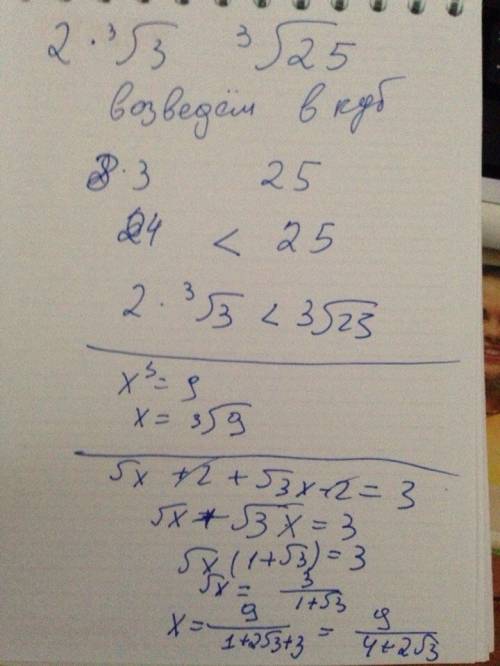 2 · ³√3   ³√25
возведём в куб
8 · 3   25
24 < 25
2 · ³√3 < ³√23
x³ = 9
x = ³√9
√x + 2 + √3x - 2 = 3
√x + √3x = 3
√x (1 + √3) = 3
√x = 3/(1+√3)
x = 9/(1+2√3+3) = 9/(4+2√3)